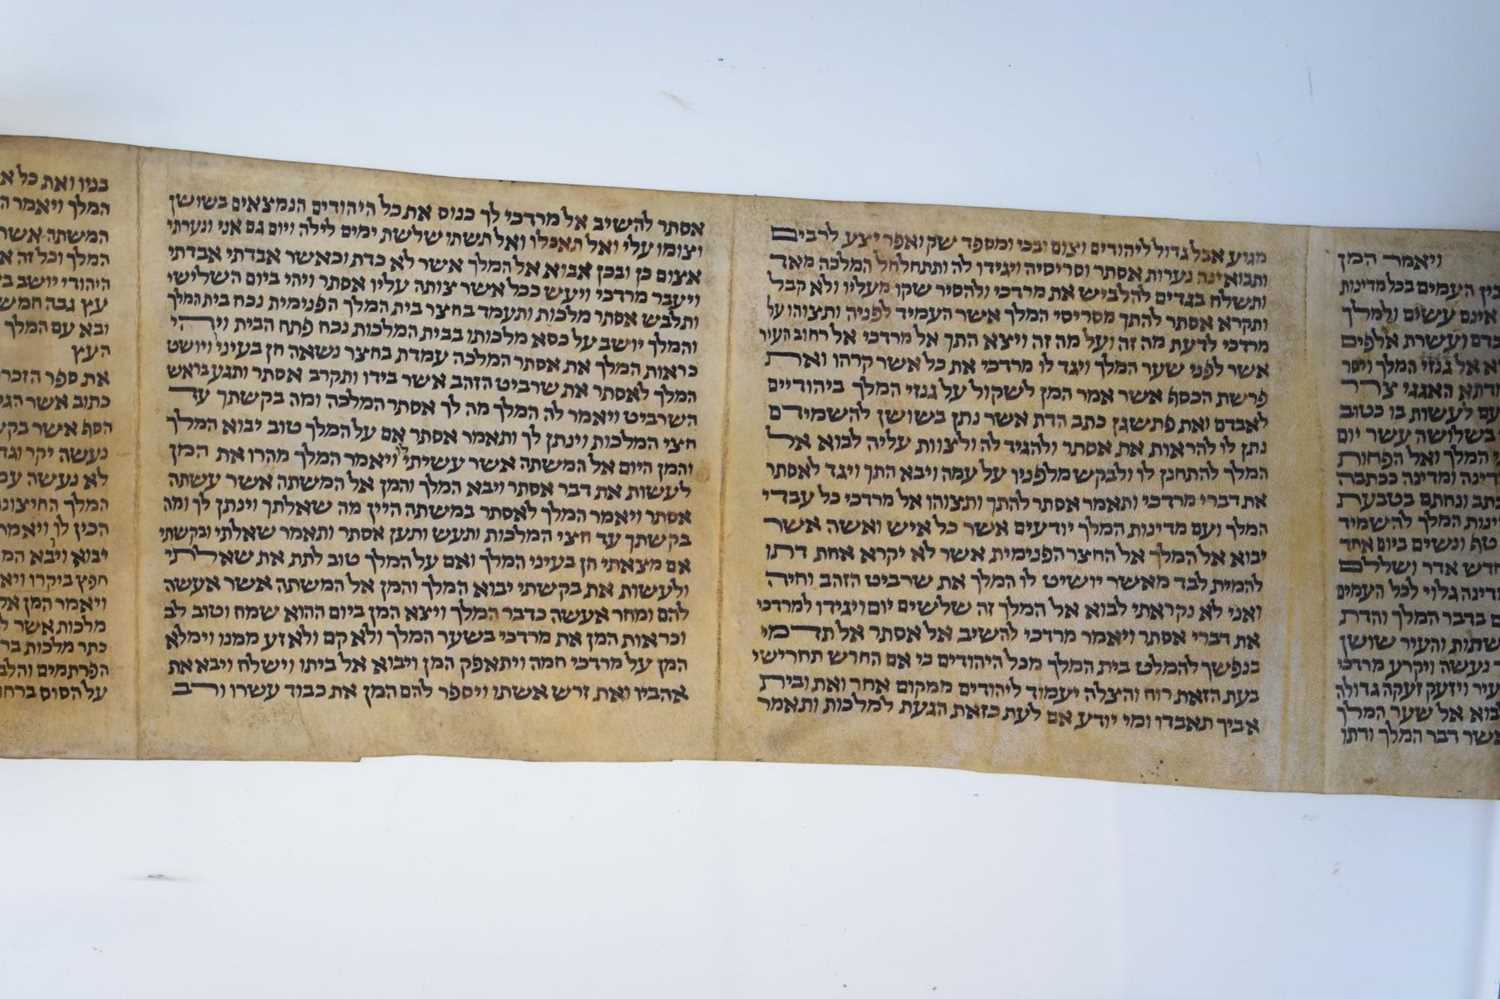 ויאמר המן
בין העמים בכל מדינות
אינם עשים ולמלך
ועשרת אלפים
אל גנזי המלך ויסר
האגגי צרר
לעשות בו כטוב
בשלושה עשר יום
המלך ואל הפחות
ומדינה ככתבה
ונחתם בטבעת
המלך להשמיד
טף ונשים ביום אחד
חדש אדר ושללם
גלוי לכל העמים
בדבר המלך והדת
לשתות והעיר שושן
נעשה ויקרע מרדכי
ויזעק זעקה גדולה
לבוא אל שער המלך
אשר דבר המלך ודתו
מגיע אבל גדול ליהודים וצום ובכי ומספד שק ואפר יצע לרבים
ותבואינה נערות אסתר וסריסיה ויגידו לה ותתחלחל המלכה מאד
ותשלח בגדים להלביש את מרדכי ולהסיר שקו מעליו ולא קבל
ותקרא אסתר להתך מסריסי המלך אשר העמיד לפניה ותצוהו על
מרדכי לדעת מה זה ועל מה זה ויצא התך אל מרדכי אל רחוב העיר
אשר לפני שער המלך ויגד לו מרדכי את כל אשר קרהו ואת
פרשת הכסף אשר אמר המן לשקול על גנזי המלך ביהודיים
לאבדם ואת פתשגן כתב הדת אשר נתן בשושן להשמידם
נתן לו להראות את אסתר ולהגיד לה ולצוות עליה לבוא אל
המלך להתחנן לו ולבקש מלפניו על עמה ויבא התך ויגד לאסתר
את דברי מרדכי ותאמר אסתר להתך ותצוהו אל מרדכי כל עבדי
המלך ועם מדינות המלך יודעים אשר כל איש ואשה אשר
יבוא אל המלך אל החצר הפנימית אשר לא יקרא אחת דתו
להמית לבד מאשר יושיט לו המלך את שרביט הזהב וחיה
ואני לא נקראתי לבוא אל המלך זה שלשים יום ויגידו למרדכי
את דברי אסתר ויאמר מרדכי להשיב אל אסתר אל תדמי
בנפשך להמלט בית המלך מכל היהודים כי אם החרש תחרישי
בעת הזאת רוח והצלה יעמוד ליהודים ממקום אחר ואת ובית
אביך תאבדו ומי יודע אם לעת כזאת הגעת למלכות ותאמר
אסתר להשיב אל מרדכי לך כנוס את כל היהודים הנמצאים בשושן
וצומו עלי ואל תאכלו ואל תשתי שלשת ימים לילה ויום גם אני ונערתי
אצום כן ובכן אבוא אל המלך אשר לא כדת וכאשר אבדתי אבדתי
ויעבר מרדכי ויעש ככל אשר צותה עליו אסתר ויהי ביום השלישי
ותלבש אסתר מלכות ותעמד בחצר בית המלך הפנימית נכח בית המלך
והמלך יושב על כסא מלכותו בבית המלכות נכח פתח הבית ויהי
כראות המלך את אסתר המלכה עמדת בחצר נשאה חן בעיניו ויושט
המלך לאסתר את שרביט הזהב אשר בידו ותקרב אסתר ותגע בראש
השרביט ויאמר לה המלך מה לך אסתר המלכה ומה בקשתך עד
חצי המלכות וינתן לך ותאמר אסתר אם על המלך טוב יבוא המלך
והמן היום אל המשתה אשר עשיתי לו ויאמר המלך מהרו את המן
לעשות את דבר אסתר ויבא המלך והמן אל המשתה אשר עשתה
אסתר ויאמר המלך לאסתר במשתה היין מה שאלתך וינתן לך ומה
בקשתך עד חצי המלכות ותעש ותען אסתר ותאמר שאלתי ובקשתי
אם מצאתי חן בעיני המלך ואם על המלך טוב לתת את שאלתי
ולעשות את בקשתי יבוא המלך והמן אל המשתה אשר אעשה
להם ומחר אעשה כדבר המלך ויצא המן ביום ההוא שמח וטוב לב
וכראות המן את מרדכי בשער המלך ולא קם ולא זע ממנו וימלא
המן על מרדכי חמה ויתאפק המן ויבוא אל ביתו וישלח ויבא את
אהביו ואת זרש אשתו ויספר להם המן את כבוד עשרו ורב
בניו ואת כל
המלך ויאמר
המשתה אשר
המלך וכל זה
היהודי יושב
עץ גבה חמש
ובא עם המלך
העץ
את ספר הזכר
כתוב אשר
הסף אשר
נעשה יקר
לא נעשה
המלך
הכין לו ויאמר
יבוא ויבא
חפץ ביקרו
ויאמר המן
מלכות אשר
כתר מלכות
הפרתמים
על הסוס ברחו